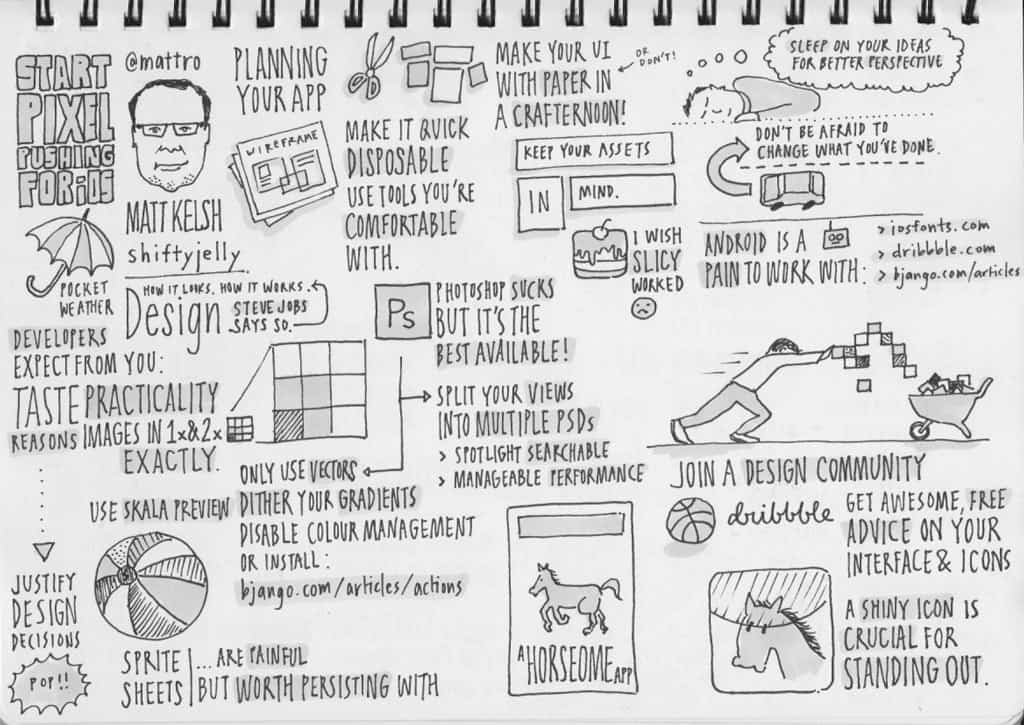 START
PIXEL
PUSHING
FOR iOS
@mattro
MATT KELSH
shiftyjelly
POCKET
WEATHER
PLANNING
YOUR APP
WIREFRAME
MAKE IT QUICK
DISPOSABLE
USE TOOLS YOU'RE
COMFORTABLE
WITH.
MAKE YOUR UI
WITH PAPER IN
A CRAFTERNOON!
OR
DON'T!
KEEP YOUR ASSETS
IN
MIND.
SLEEP ON YOUR IDEAS
FOR BETTER PERSPECTIVE
DON'T BE AFRAID TO
CHANGE WHAT YOU'VE DONE.
I WISH
SLICY
WORKED
ANDROID IS A
PAIN TO WORK WITH:
> iosfonts.com
> dribbble.com
> bjango.com/articles
HOW IT LOOKS. HOW IT WORKS.
Design
STEVE JOBS
SAYS SO.
DEVELOPERS
EXPECT FROM YOU:
TASTE
REASONS
PRACTICALITY
IMAGES IN 1x & 2x
EXACTLY.
JUSTIFY
DESIGN
DECISIONS
POP!!
Ps
PHOTOSHOP SUCKS
BUT IT'S THE
BEST AVAILABLE!
SPLIT YOUR VIEWS
INTO MULTIPLE PSDs
> SPOTLIGHT SEARCHABLE
> MANAGEABLE PERFORMANCE
ONLY USE VECTORS
USE SKALA PREVIEW
DITHER YOUR GRADIENTS
DISABLE COLOUR MANAGEMENT
OR INSTALL:
bjango.com/articles/actions
SPRITE
SHEETS
... ARE PAINFUL
BUT WORTH PERSISTING WITH
A HORSEOME APP
JOIN A DESIGN COMMUNITY
dribbble
GET AWESOME, FREE
ADVICE ON YOUR
INTERFACE & ICONS
A SHINY ICON IS
CRUCIAL FOR
STANDING OUT.